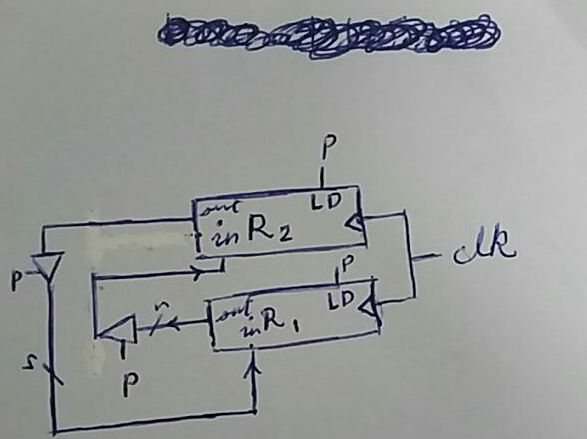 P
out LD
in R2
clk
P
P
out LD
in R1
n
s
P